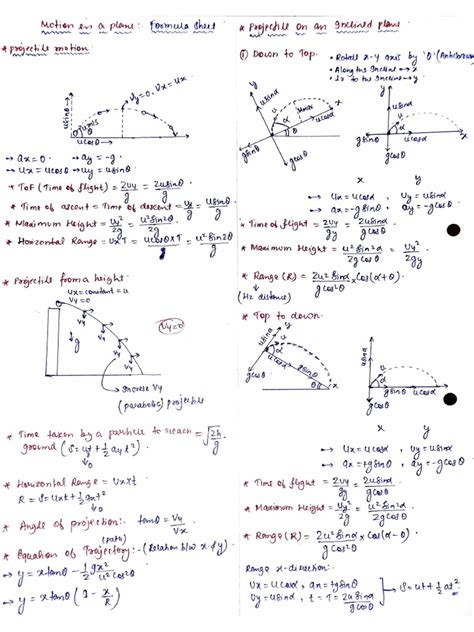 Motion in a plane: Formula Sheet
* Projectile motion:
Vy=0, Vx=Ux
usinθ
θ
ucosθ
→ ax=0. → ay=-g.
→ Ux = ucosθ → uy = usinθ
* ToF (Time of flight) = 2Uy/gy = 2usinθ/g
* Time of ascent = Time of descent = Uy/g = usinθ/g
* Maximum Height = Uy²/2g = u²sin²θ/2g
* Horizontal Range = Ux×T = ucosθ×T = u²sin²θ/g
* Projectile from a height:
Ux = constant = u
Vy=0
Vy
Vy
Vy
Vy
Vy=0
↓g
Increse Vy
(parabolic) projectile
* Time taken by a particle to reach = √2h/g
ground (S = ut + 1/2 ayt²)
↓0
* Horizontal Range = Vx×t
R = S = Uxt + 1/2 axt²
↓0
* Angle of projection: tanθ = Vy/Vx
(path)
* Equation of Trajectory: (Relation b/w x & y)
→ y = xtanθ - 1/2 gx²/u²cos²θ
→ y = xtanθ (1 - x/R)
* Projectile on an Inclined plane
① Down to Top.
• Rotate x-y axis by 'θ'
• Along the Incline → x
• Ir to the Incline → y
y
usinα
u
α
ucosα
x
θ
gsinθ
gcosθ
y
usinα
u
α
ucosα
x
gsinθ
gcosθ
x y
→ Ux = ucosα, Uy = usinα
→ ax = -gsinθ, ay = -gcosθ
* Time of flight = 2Uy/gy = 2usinα/gcosθ
* Maximum Height = u²sin²α/2gcosθ = Uy²/2gy
* Range (R) = 2u²sinα/gcos²θ × cos(α+θ)
(Hz distance)
* Top to down.
y
usinα
u
α
ucosα
gsinθ
θ
x
gcosθ
usinα
u
α
gsinθ
ucosα
gcosθ
x y
→ Ux = ucosα, Uy = usinα
→ ax = +gsinθ, ay = -gcosθ
* Time of flight = 2Uy/gy = 2usinα/gcosθ
* Maximum Height = Uy²/2gy = u²sin²α/2gcosθ
* Range(R) = 2u²sinα/gcos²θ × cos(α-θ)
Range x-direction:
Ux = ucosα, ax = +gsinθ
Uy = usinα, t = T = 2usinα/gcosθ
→ S = ut + 1/2 at²